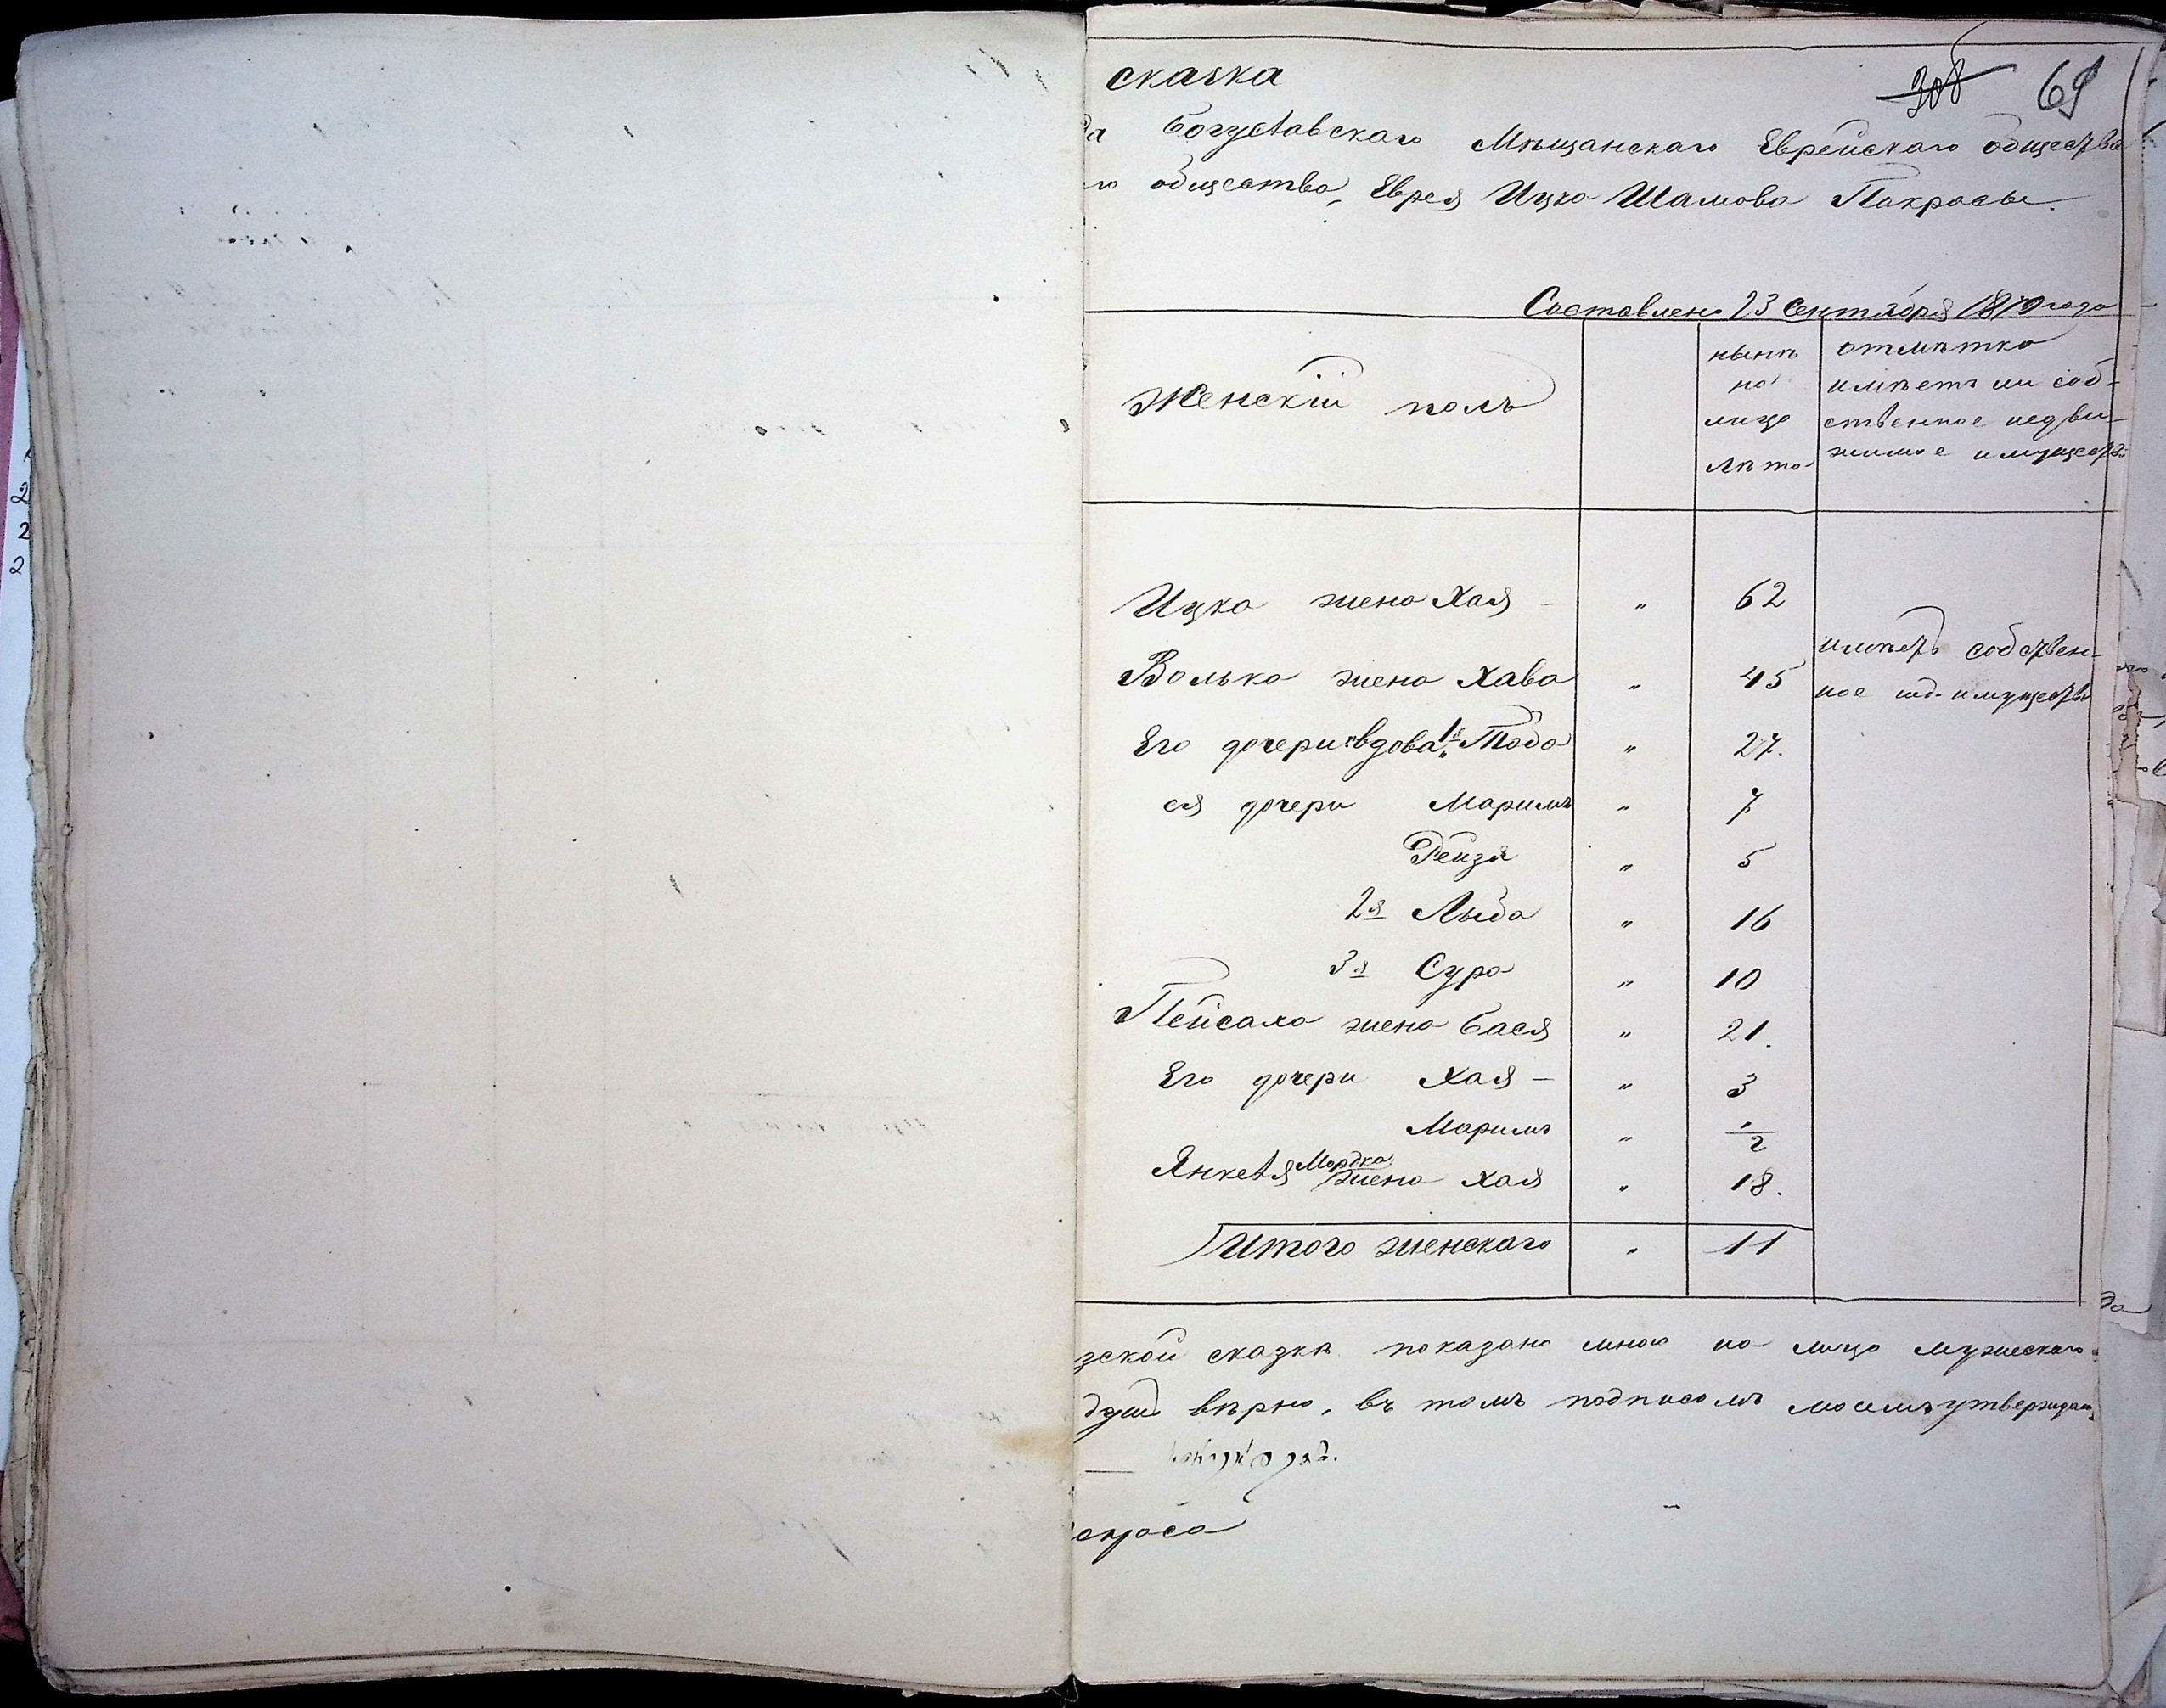 сказка
308 69
да Богуславскаго Мѣщанскаго Еврейскаго общества
го общества, Еврея Ицка Шамова Покрасы.
Составлена 23 Сентября 1870 года
Женскій полъ
нынѣ на лицо лѣта
отмѣтка имѣетъ ли соб-
ственное недви-
жимое имущество
Ицка жена Хая – " 62
имѣетъ собствен-
Волька жена Хава " 45
ное нед. имущество
Его дочери вдова 1я Тоба " 27.
ея дочери Маримъ " 7
Рейзя " 5
2я Лыба " 16
3я Сура " 10
Пейсаха жена Бася " 21.
Его дочери Хая – " 3
Маримъ " 1/2
Янкеля Мордка жена Хая " 18.
Итого женскаго " 11
зской сказкѣ показано мною на лицо мужескаго
душъ вѣрно, въ томъ подписомъ моимъ утверждаю